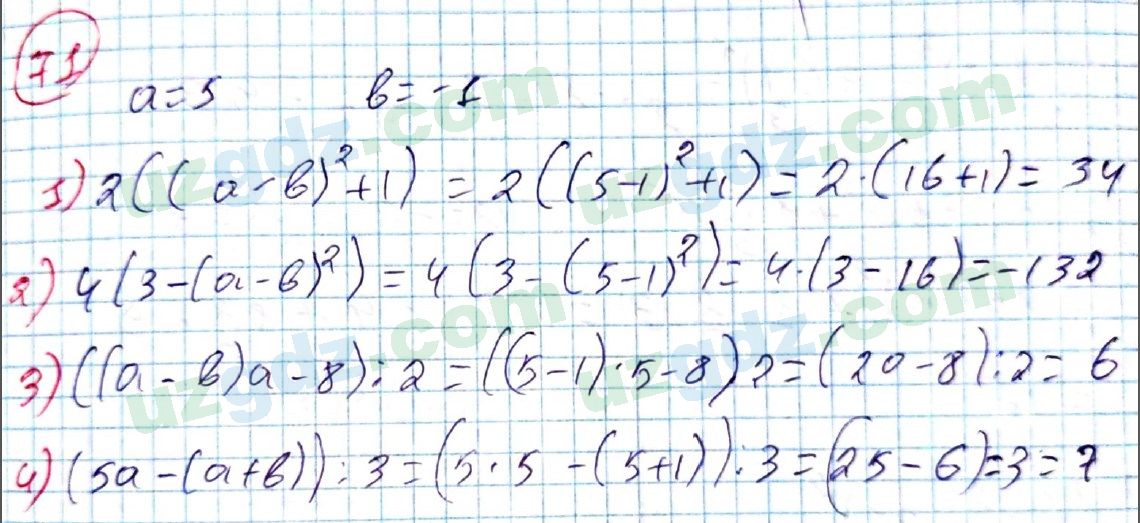 71
a = 5 b = -1
1) 2((a-b)²+1) = 2((5-1)²+1) = 2·(16+1) = 34
2) 4(3-(a-b)²) = 4(3-(5-1)²) = 4·(3-16) = -132
3) ((a-b)a-8):2 = ((5-1)·5-8) 2 = (20-8):2 = 6
4) (5a-(a+b)):3 = (5·5-(5+1)):3 = (25-6)=3=7
uzgdz.com uzgdz.com
uzgdz.com uzgdz.com